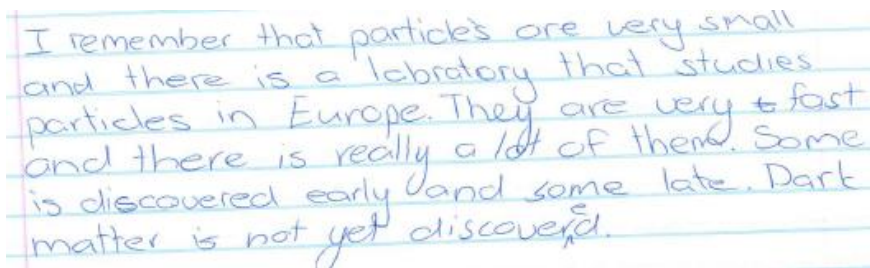 I remember that particles are very small
and there is a labratory that studies
particles in Europe. They are very fast
and there is really a lot of them. Some
is discovered early and some late. Dark
matter is not yet discovered.